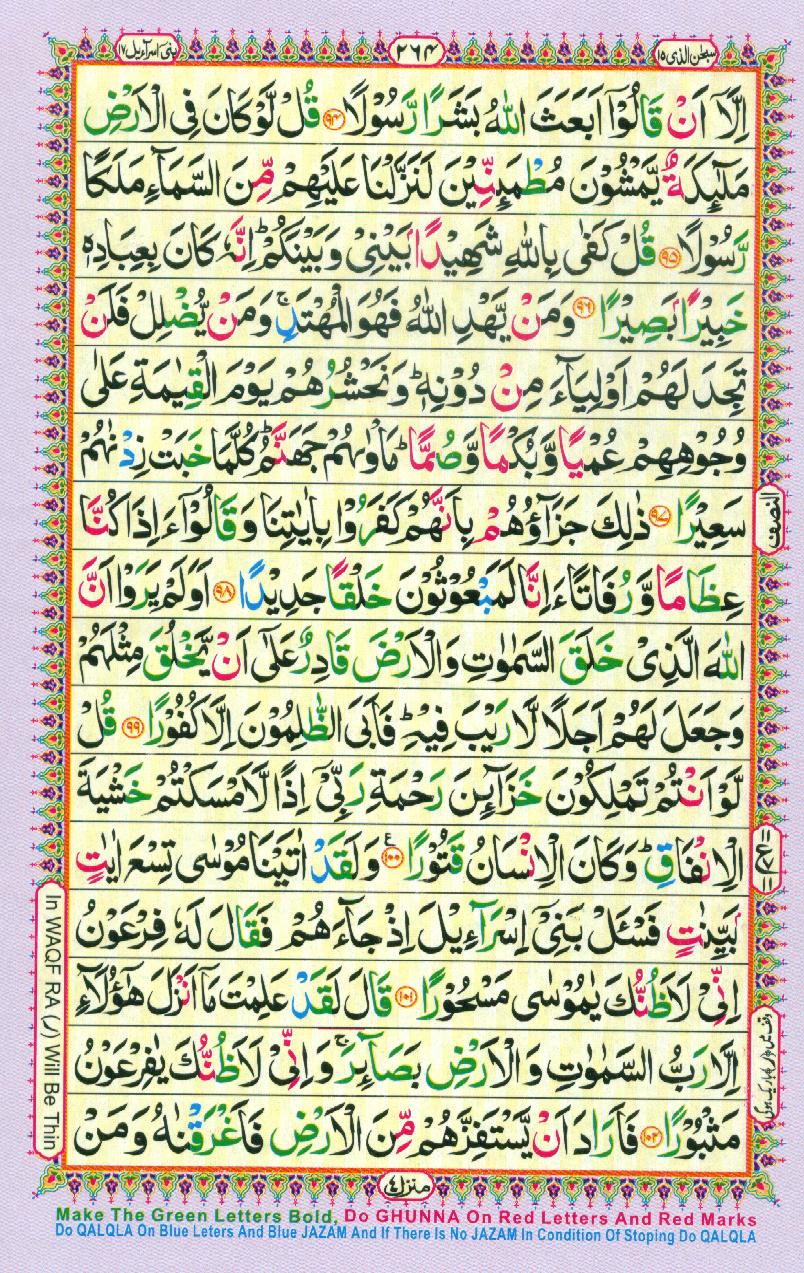 سبحٰن الذی ۱۵
۲۶۴
بنی اسرآءیل ۱۷
اِلَّاۤ اَنْ قَالُوْۤا اَبَعَثَ اللّٰهُ بَشَرًا رَّسُوْلًا ﴿۹۴﴾ قُلْ لَّوْ كَانَ فِی الْاَرْضِ
مَلٰٓىِٕكَةٌ یَّمْشُوْنَ مُطْمَىِٕنِّیْنَ لَنَزَّلْنَا عَلَیْهِمْ مِّنَ السَّمَآءِ مَلَكًا
رَّسُوْلًا ﴿۹۵﴾ قُلْ كَفٰی بِاللّٰهِ شَهِیْدًۢا بَیْنِیْ وَبَیْنَكُمْ ؕ اِنَّهٗ كَانَ بِعِبَادِهٖ
خَبِیْرًۢا بَصِیْرًا ﴿۹۶﴾ وَمَنْ یَّهْدِ اللّٰهُ فَهُوَ الْمُهْتَدِ ۚ وَمَنْ یُّضْلِلْ فَلَنْ
تَجِدَ لَهُمْ اَوْلِیَآءَ مِنْ دُوْنِهٖ ؕ وَنَحْشُرُهُمْ یَوْمَ الْقِیٰمَةِ عَلٰی
وُجُوْهِهِمْ عُمْیًا وَّبُكْمًا وَّصُمًّا ؕ مَاْوٰىهُمْ جَهَنَّمُ ؕ كُلَّمَا خَبَتْ زِدْنٰهُمْ
سَعِیْرًا ﴿۹۷﴾ ذٰلِكَ جَزَآؤُهُمْ بِاَنَّهُمْ كَفَرُوْا بِاٰیٰتِنَا وَقَالُوْۤا ءَاِذَا كُنَّا
النصف
عِظَامًا وَّرُفَاتًا ءَاِنَّا لَمَبْعُوْثُوْنَ خَلْقًا جَدِیْدًا ﴿۹۸﴾ اَوَلَمْ یَرَوْا اَنَّ
اللّٰهَ الَّذِیْ خَلَقَ السَّمٰوٰتِ وَالْاَرْضَ قَادِرٌ عَلٰۤی اَنْ یَّخْلُقَ مِثْلَهُمْ
وَجَعَلَ لَهُمْ اَجَلًا لَّا رَیْبَ فِیْهِ ؕ فَاَبَی الظّٰلِمُوْنَ اِلَّا كُفُوْرًا ﴿۹۹﴾ قُلْ
لَّوْ اَنْتُمْ تَمْلِكُوْنَ خَزَآىِٕنَ رَحْمَةِ رَبِّیْۤ اِذًا لَّاَمْسَكْتُمْ خَشْیَةَ
الْاِنْفَاقِ ؕ وَكَانَ الْاِنْسَانُ قَتُوْرًا ﴿۱۰۰﴾ وَلَقَدْ اٰتَیْنَا مُوْسٰی تِسْعَ اٰیٰتٍۭ
بَیِّنٰتٍ فَسْـَٔلْ بَنِیْۤ اِسْرَآءِیْلَ اِذْ جَآءَهُمْ فَقَالَ لَهٗ فِرْعَوْنُ
اِنِّیْ لَاَظُنُّكَ یٰمُوْسٰی مَسْحُوْرًا ﴿۱۰۱﴾ قَالَ لَقَدْ عَلِمْتَ مَاۤ اَنْزَلَ هٰۤؤُلَآءِ
اِلَّا رَبُّ السَّمٰوٰتِ وَالْاَرْضِ بَصَآىِٕرَ ۚ وَاِنِّیْ لَاَظُنُّكَ یٰفِرْعَوْنُ
مَثْبُوْرًا ﴿۱۰۲﴾ فَاَرَادَ اَنْ یَّسْتَفِزَّهُمْ مِّنَ الْاَرْضِ فَاَغْرَقْنٰهُ وَمَنْ
In WAQF RA (ر) Will Be Thin
منزل ۴
Make The Green Letters Bold, Do GHUNNA On Red Letters And Red Marks
Do QALQLA On Blue Leters And Blue JAZAM And If There Is No JAZAM In Condition Of Stoping Do QALQLA